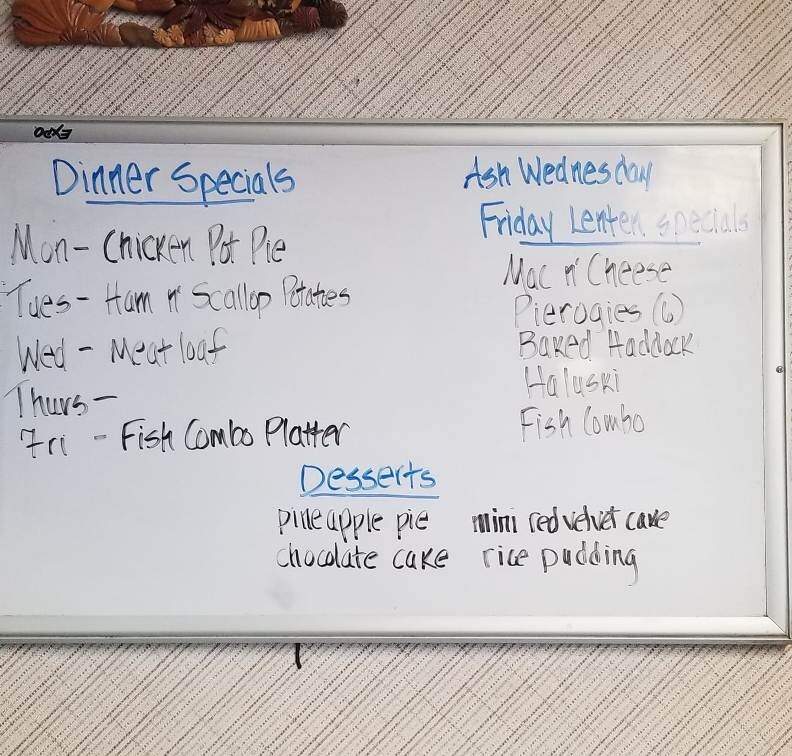 EXPO
Dinner Specials
Mon - Chicken Pot Pie
Tues - Ham n' Scallop Potatoes
Wed - Meatloaf
Thurs -
Fri - Fish Combo Platter
Ash Wednesday
Friday Lenten specials
Mac n' Cheese
Pierogies (6)
Baked Haddock
Haluski
Fish Combo
Desserts
pineapple pie mini red velvet cake
chocolate cake rice pudding